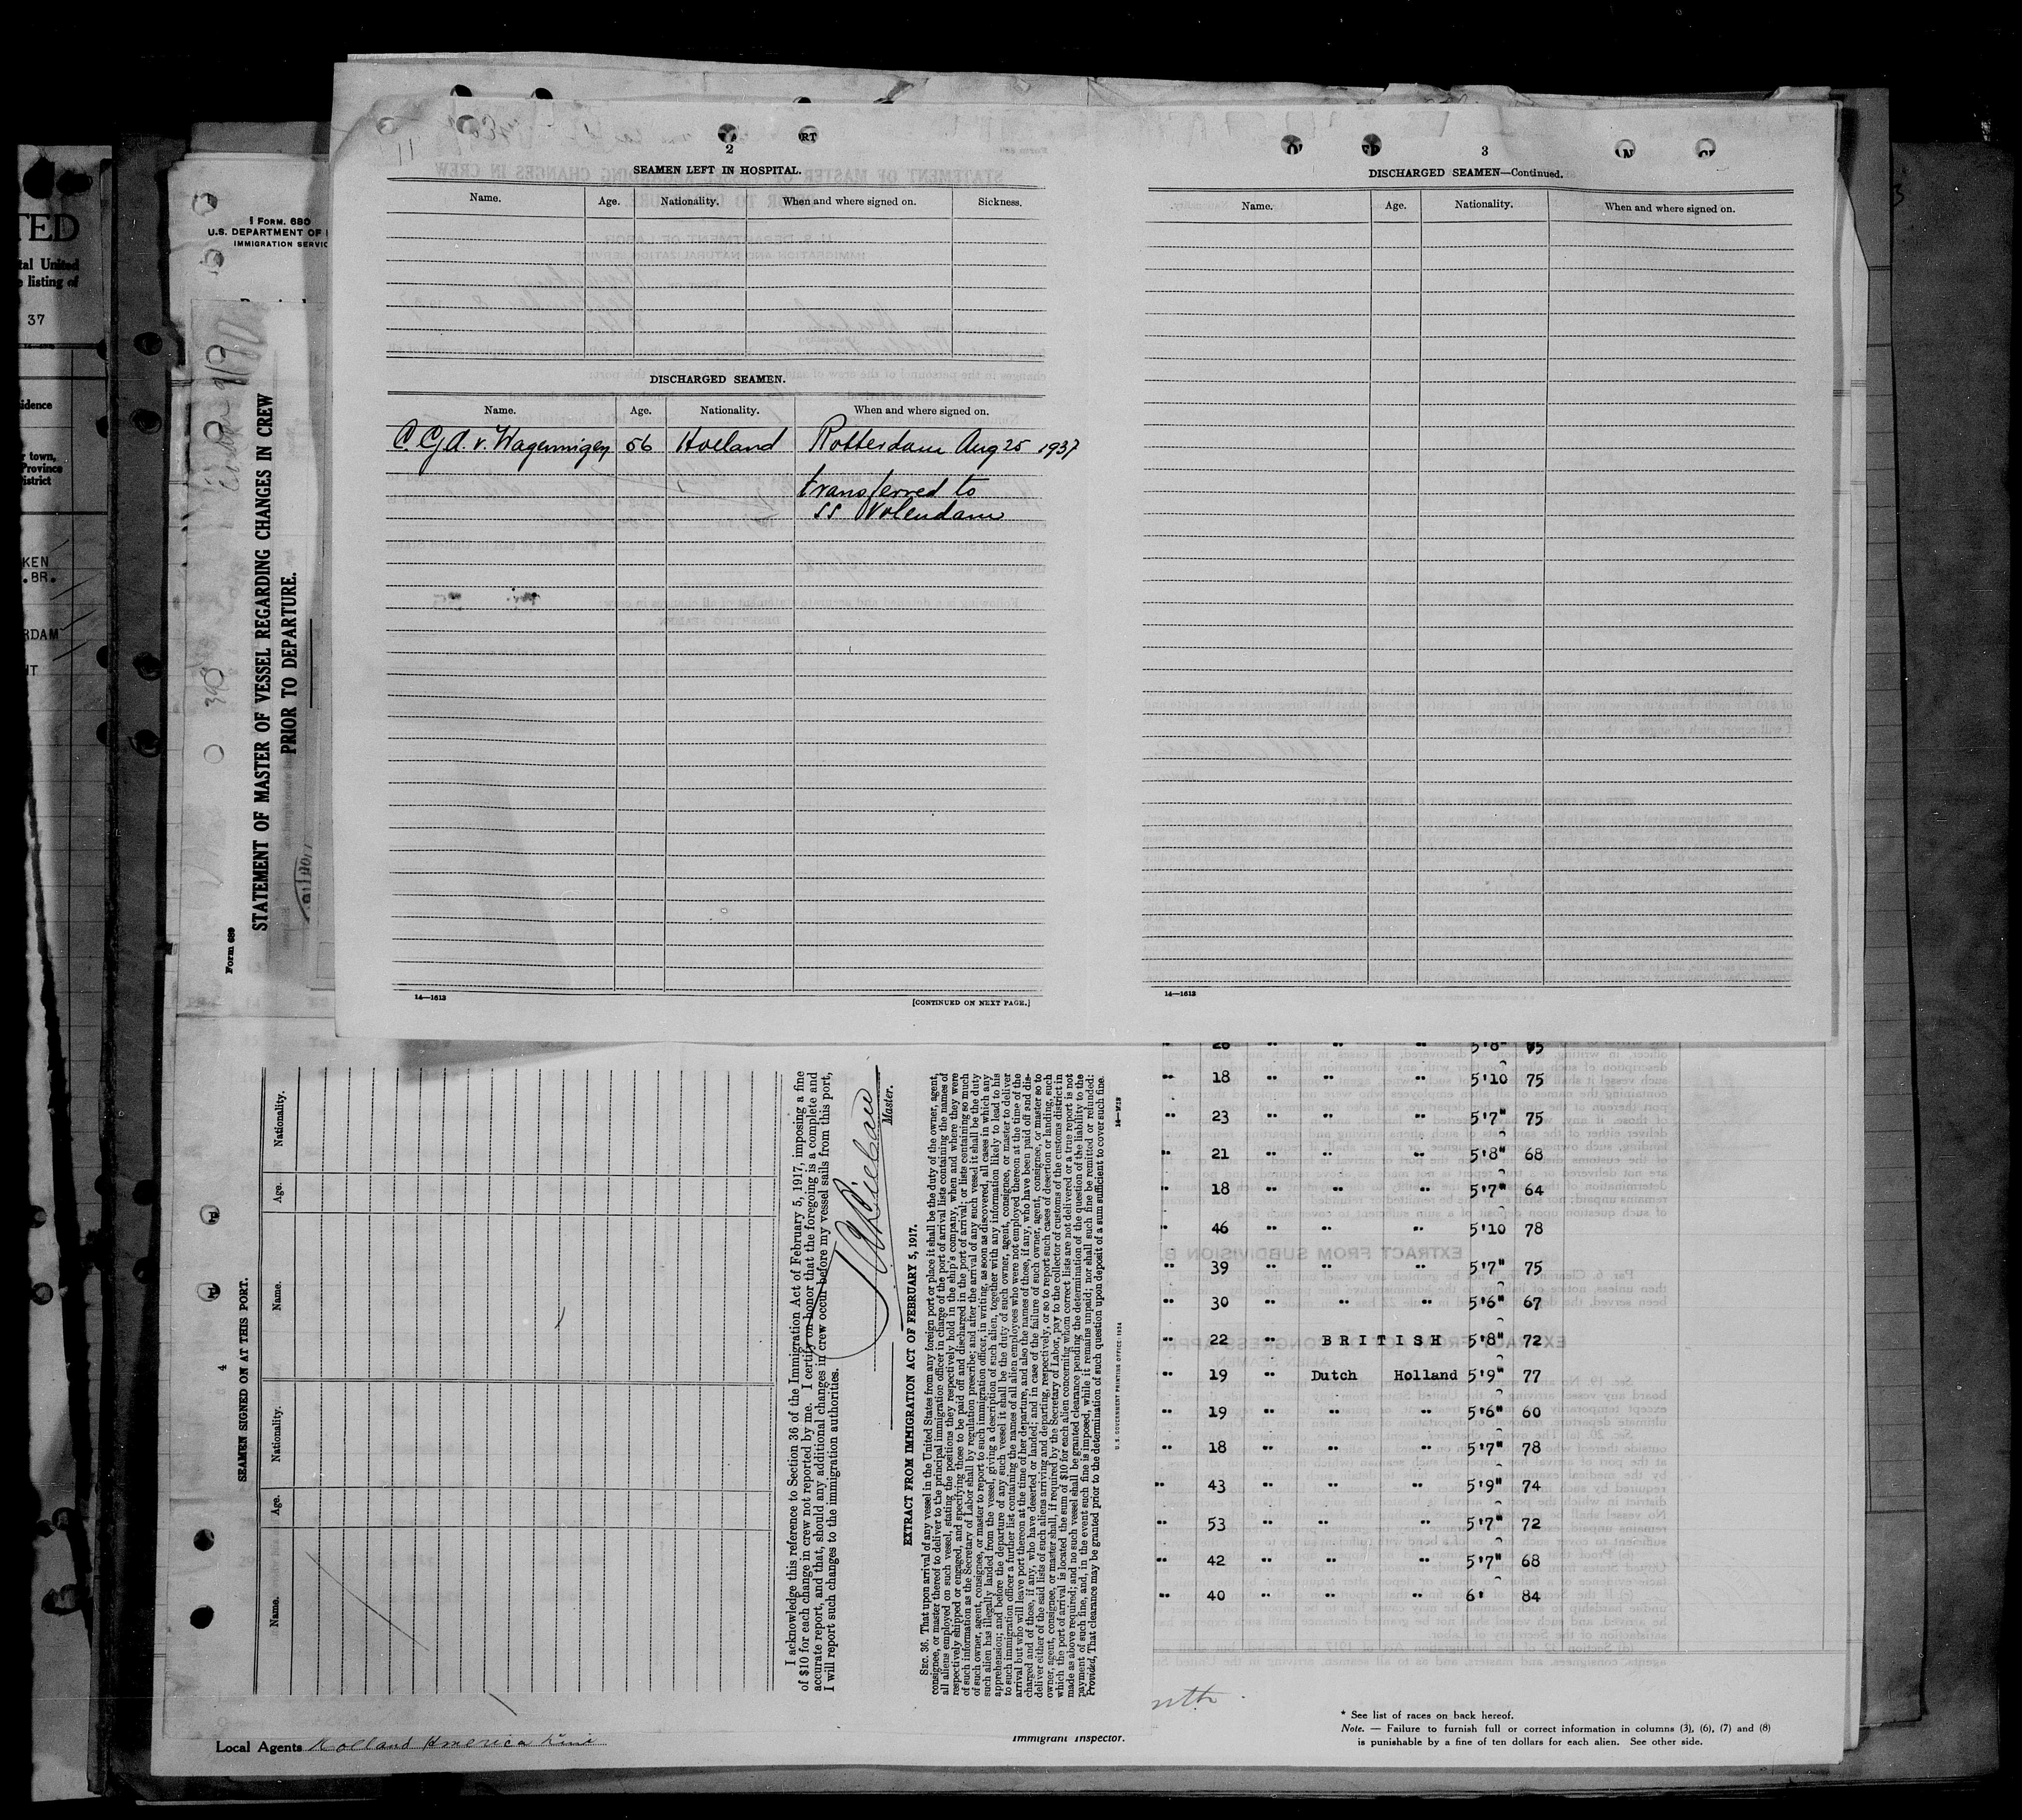 TED
tal United
e listing of
37
idence
r town,
Province
istrict
KEN
. BR.
RDAM
Form. 680
U.S. DEPARTMENT OF
IMMIGRATION SERVIC
Form 689
STATEMENT OF MASTER OF VESSEL REGARDING CHANGES IN CREW
PRIOR TO DEPARTURE.
2
SEAMEN LEFT IN HOSPITAL.
Name. Age. Nationality. When and where signed on. Sickness.
DISCHARGED SEAMEN.
Name. Age. Nationality. When and where signed on.
v. Wagenningen 56 Holland Rotterdam Aug 25 1937
transferred to
SS Volendam
14—1613
[CONTINUED ON NEXT PAGE.]
3
DISCHARGED SEAMEN—Continued.
Name. Age. Nationality. When and where signed on.
14—1613
4
SEAMEN SIGNED ON AT THIS PORT.
Name. Age. Nationality. Name. Age. Nationality.
I acknowledge this reference to Section 36 of the Immigration Act of February 5, 1917, imposing a fine
of $10 for each change in crew not reported by me. I certify on honor that the foregoing is a complete and
accurate report, and that, should any additional changes in crew occur before my vessel sails from this port,
I will report such changes to the immigration authorities.
Master.
EXTRACT FROM IMMIGRATION ACT OF FEBRUARY 5, 1917.
SEC. 36. That upon arrival of any vessel in the United States from any foreign port or place it shall be the duty of the owner, agent,
consignee, or master thereof to deliver to the principal immigration officer in charge of the port of arrival lists containing the names of
all aliens employed on such vessel, stating the positions they respectively hold in the ship's company, when and where they were
respectively shipped or engaged, and specifying those to be paid off and discharged in the port of arrival; or lists containing so much
of such information as the Secretary of Labor shall by regulation prescribe; and after the arrival of any such vessel it shall be the duty
of such owner, agent, consignee, or master to report to such immigration officer, in writing, as soon as discovered, all cases in which any
such alien has illegally landed from the vessel, giving a description of such alien, together with any information likely to lead to his
apprehension; and before the departure of any such vessel it shall be the duty of such owner, agent, consignee, or master to deliver
to such immigration officer a further list containing the names of all alien employees who were not employed thereon at the time of the
arrival but who will leave port thereon at the time of her departure, and also the names of those, if any, who have been paid off and dis-
charged and of those, if any, who have deserted or landed; and in case of the failure of such owner, agent, consignee, or master so to
deliver either of the said lists of such aliens arriving and departing, respectively, or so to report such cases of desertion or landing, such
owner, agent, consignee, or master shall, if required by the Secretary of Labor, pay to the collector of customs of the customs district in
which the port of arrival is located the sum of $10 for each alien concerning whom correct lists are not delivered or a true report is not
made as above required; and no such vessel shall be granted clearance pending the determination of the question of the liability to the
payment of such fine, and, in the event such fine is imposed, while it remains unpaid; nor shall such fine be remitted or refunded:
Provided, That clearance may be granted prior to the determination of such question upon deposit of a sum sufficient to cover such fine.
U. S. GOVERNMENT PRINTING OFFICE: 1934
" 18 " " " 5'10 75
" 23 " " " 5'7" 75
" 21 " " " 5'8" 68
" 18 " " " 5'7" 64
" 46 " " " 5'10 78
" 39 " " " 5'7" 75
" 30 " " " 5'6" 67
" 22 " BRITISH 5'8" 72
" 19 " Dutch Holland 5'9" 77
" 19 " " " 5'6" 60
" 18 " " " 5'7" 78
" 43 " " " 5'9" 74
" 53 " " " 5'7" 72
" 42 " " " 5'7" 68
" 40 " " " 6' 84
* See list of races on back hereof.
Note. — Failure to furnish full or correct information in columns (3), (6), (7) and (8)
is punishable by a fine of ten dollars for each alien. See other side.
Local Agents Holland America Line
Immigrant Inspector.